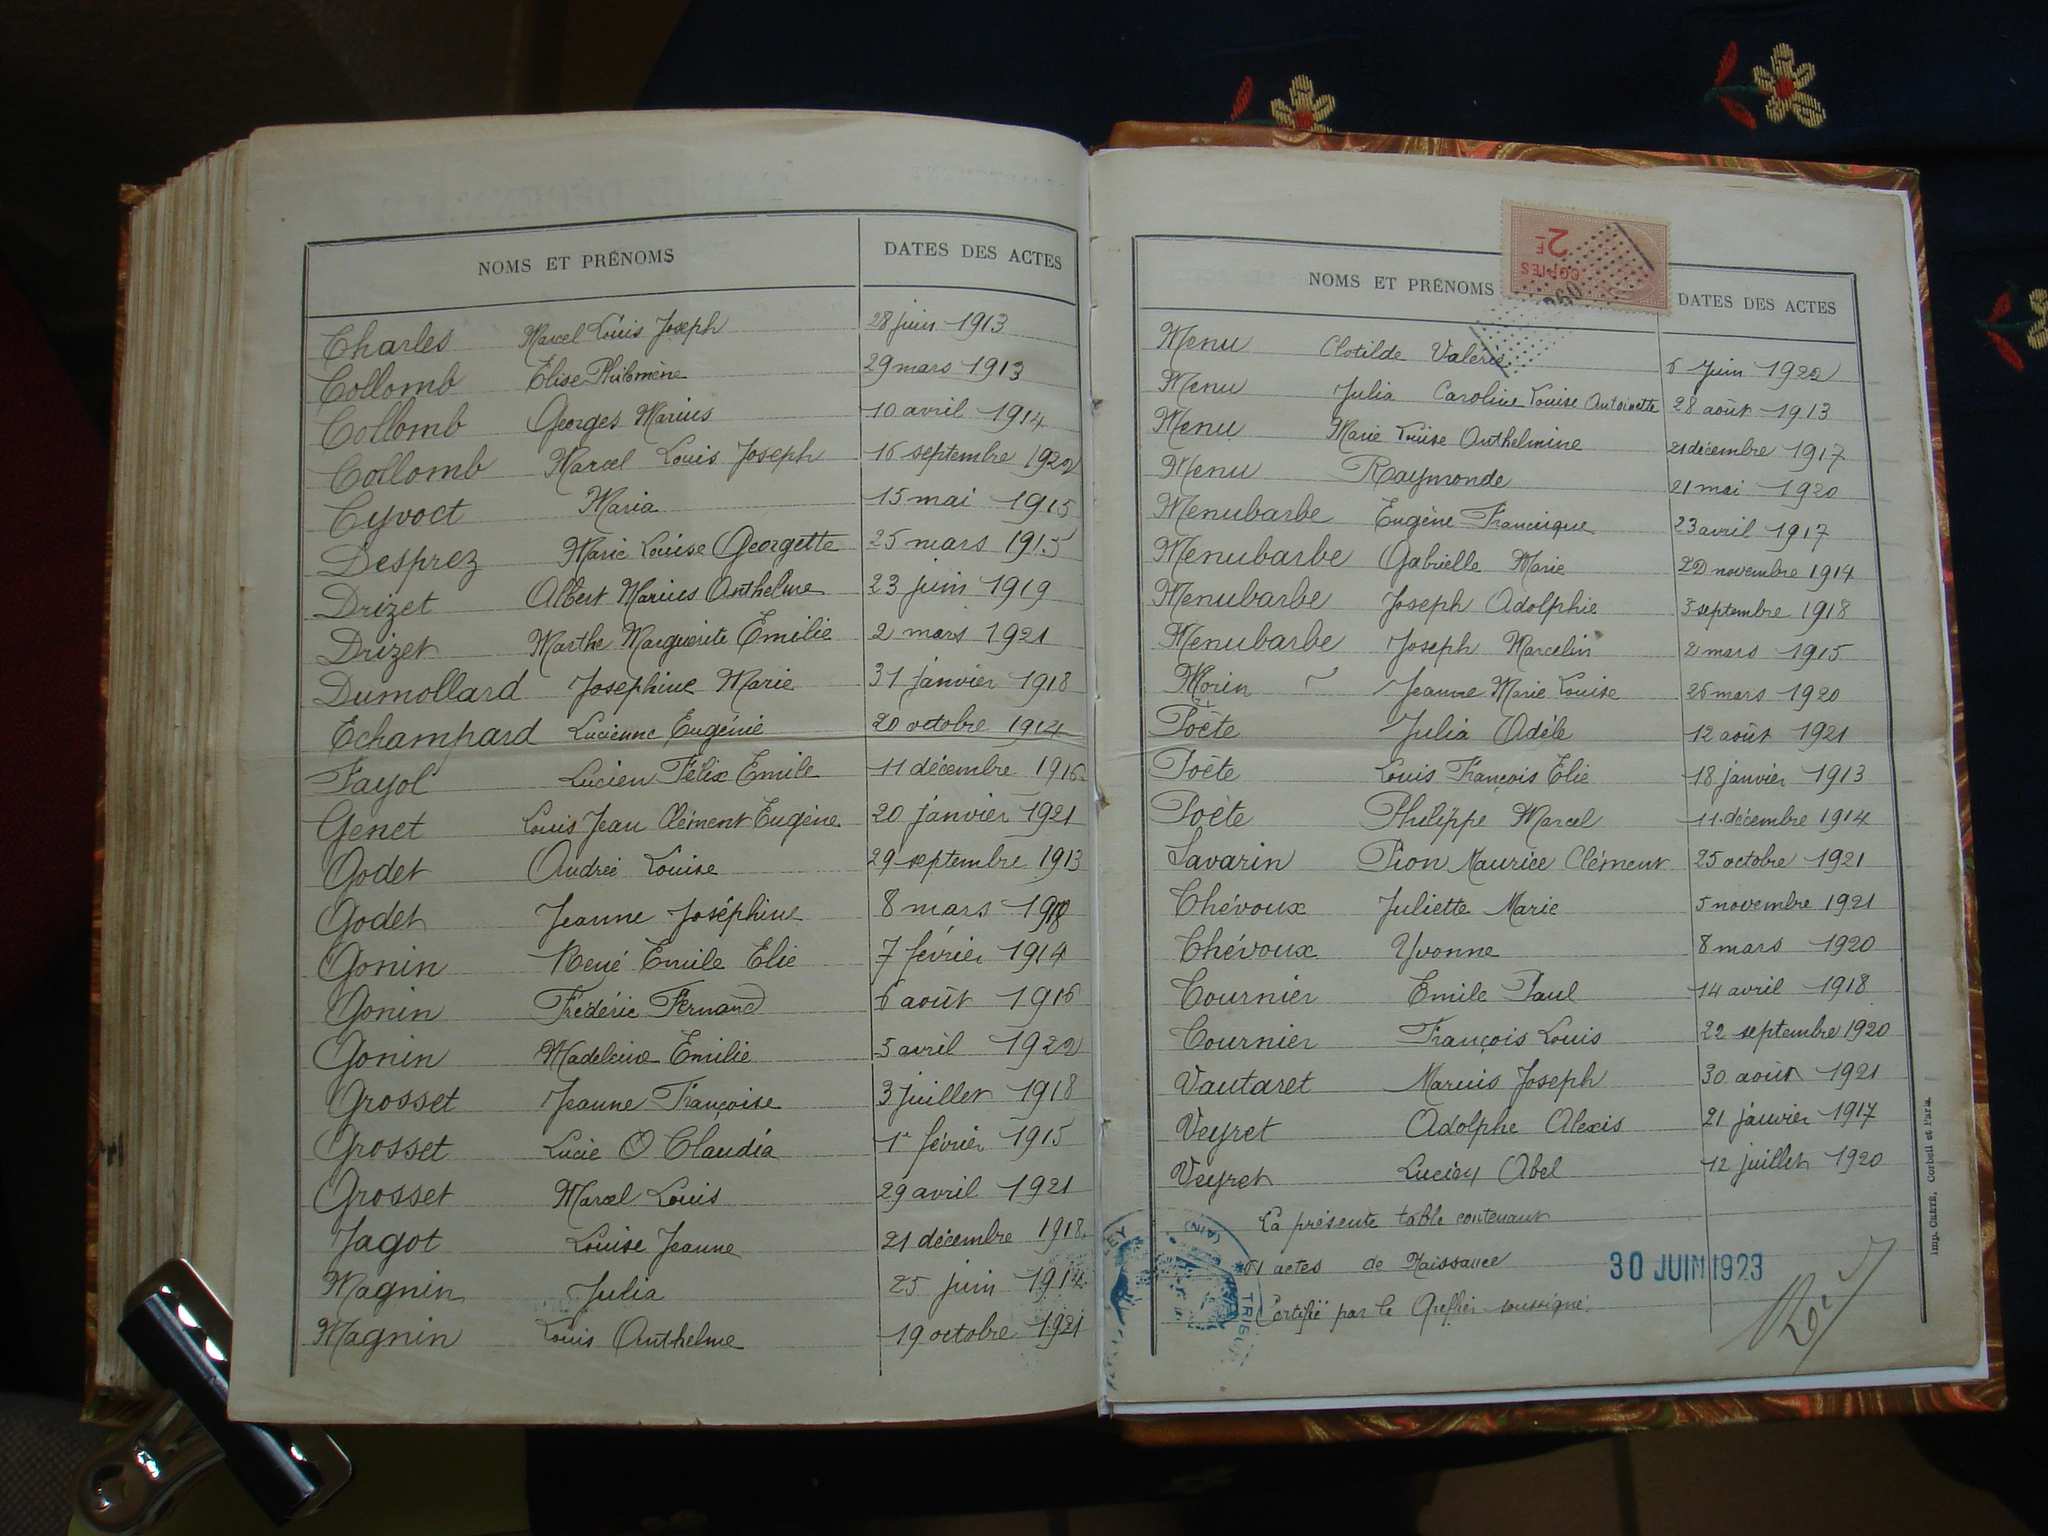 NOMS ET PRÉNOMS DATES DES ACTES
Charles Marcel Louis Joseph 28 juin 1913
Collomb Elise Philomène 29 mars 1913
Collomb Georges Marius 10 avril 1914
Collomb Marcel Louis Joseph 16 septembre 1922
Cyvoct Maria 15 mai 1915
Desprez Marie Louise Georgette 25 mars 1915
Drizet Albert Marius Anthelme 23 juin 1919
Drizet Marthe Marguerite Emilie 2 mars 1921
Dumollard Joséphine Marie 31 janvier 1918
Echampard Lucienne Eugénie 20 octobre 1914
Fayol Lucien Félix Emile 11 décembre 1916
Genet Louis Jean Clément Eugène 20 janvier 1921
Godet Andrée Louise 29 septembre 1913
Godet Jeanne Joséphine 8 mars
Gonin René Emile Elie 7 février 1914
Gonin Frédéric Fernand 6 août 1916
Gonin Madeleine Emilie 5 avril 1922
Grosset Jeanne Françoise 3 juillet 1918
Grosset Lucie O Claudia 1er février 1915
Grosset Marcel Louis 29 avril 1921
Jagot Louise Jeanne 21 décembre 1918
Magnin Julia 25 juin 1914
Magnin Louis Anthelme 19 octobre 1921
COPIES
2F
NOMS ET PRÉNOMS DATES DES ACTES
Menu Clotilde Valérie 6 juin 1922
Menu Julia Caroline Louise Antoinette 28 août 1913
Menu Marie Louise Anthelmine 21 décembre 1917
Menu Raymonde 21 mai 1920
Menubarbe Eugène Francisque 23 avril 1917
Menubarbe Gabrielle Marie 20 novembre 1914
Menubarbe Joseph Adolphie 3 septembre 1918
Menubarbe Joseph Marcelin 2 mars 1915
Morin Jeanne Marie Louise 26 mars 1920
Poëte Julia Adèle 12 août 1921
Poëte Louis François Elie 18 janvier 1913
Poëte Philippe Marcel 11 décembre 1914
Savarin Pion Maurice Clément 25 octobre 1921
Thévoux Juliette Marie 5 novembre 1921
Thévoux Yvonne 8 mars 1920
Tournier Emile Paul 14 avril 1918
Tournier François Louis 22 septembre 1920
Vautaret Marius Joseph 30 août 1921
Veyret Adolphe Alexis 21 janvier 1917
Veyret Lucien Abel 12 juillet 1920
La présente table contenant
actes de Naissance
30 JUIN 1923
Certifié par le Greffier soussigné.
Corbeil et Paris.